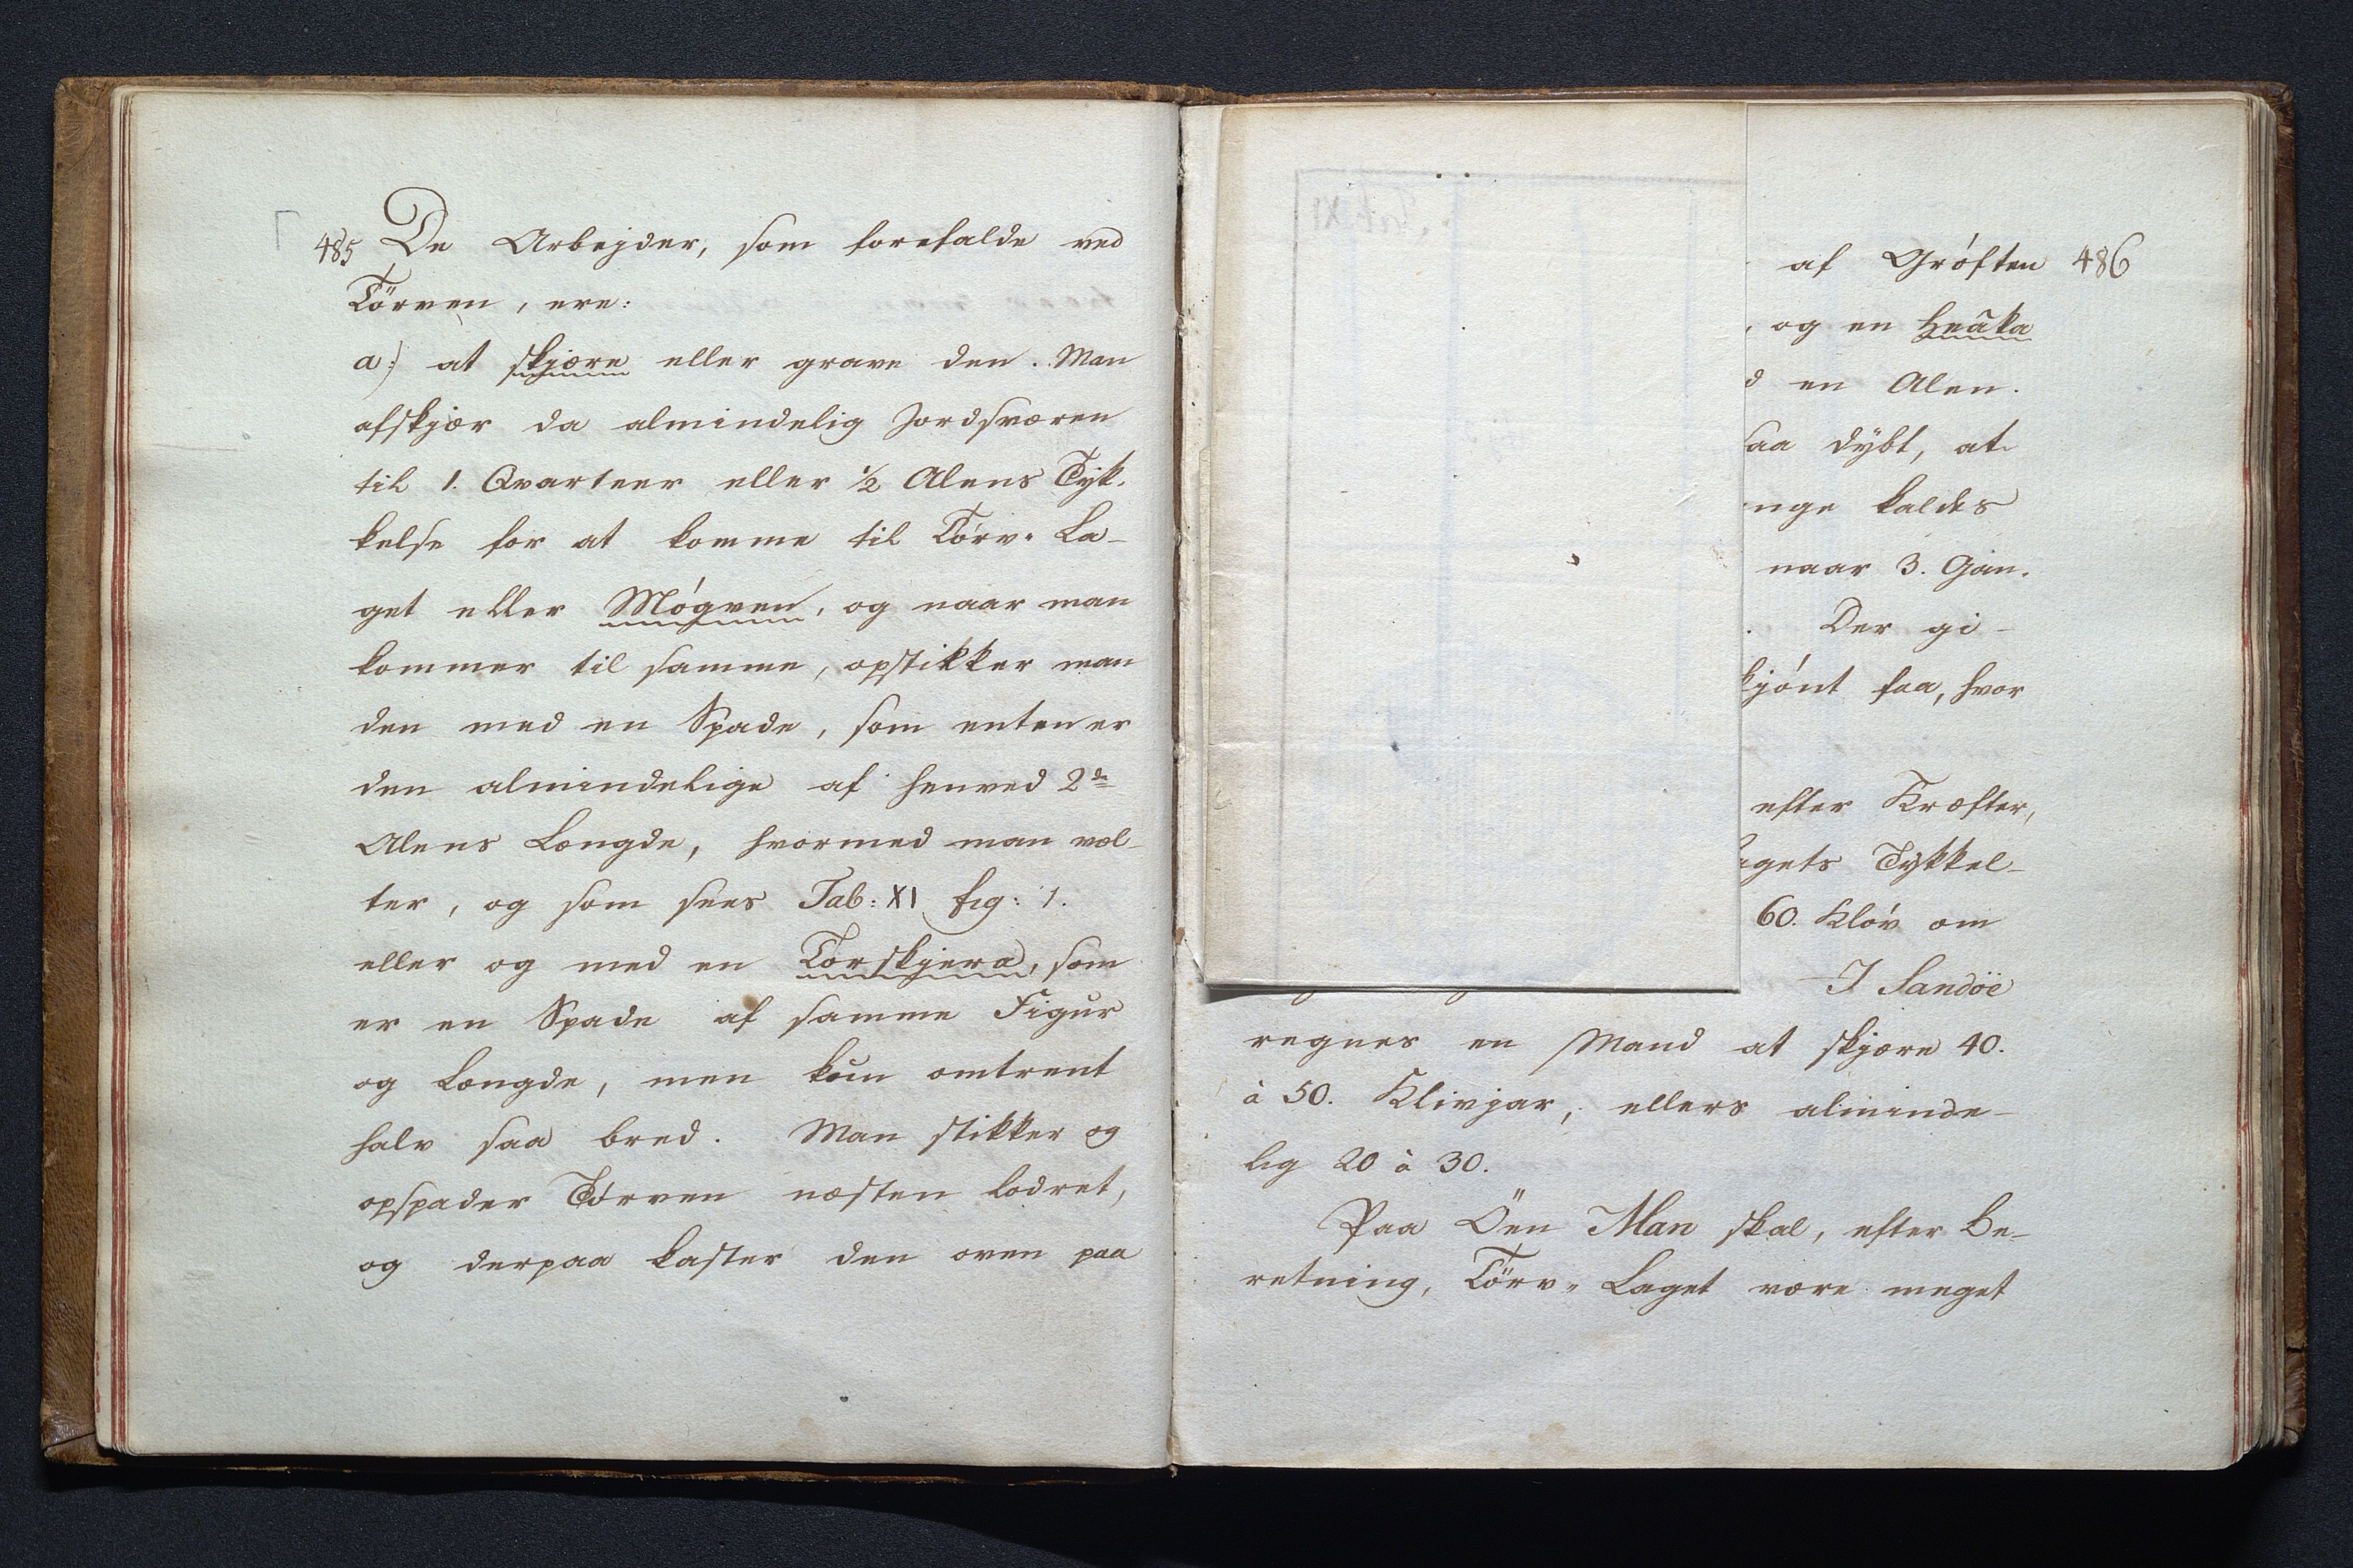 485 De Arbejder, som forefalde ved
Törven, ere:
a:) at skjære eller grave den. Man
afskjær da almindelig Jordsværen
til 1. Qvarteer eller ½ Alens Tyk-
kelse for at komme til Tórv- La-
get eller Mógven, og naar man
kommer til samme, opstikker man
den med en Spade, som enten er
den almindelige af henved 2de
Alens Længde, hvormed man vel-
ter, og som sees Tab: XI fig: 1.
eller og med en Torskjera, som
er en Spade af samme Figur
og Længde, men kun omtrent
halv saa bred. Man stikker og
opspader Tórven næsten lodret,
og derpaa kaster den oven paa
Tab XI
af Gróften 486
, og en heâka
d en Alen.
saa dÿbt, at
nge kaldes
naar 3. Gan-
. Der gi-
kjónt faa, hvor
efter Kræfter,
agets Tykkel-
60. Klóv om
I Sandöe
regnes en Mand at skjære 40.
à 50. Klivjar, ellers alminde-
lig 20 à 30.
Paa Öen Man skal, efter Be-
retning, Törv- Laget være meget